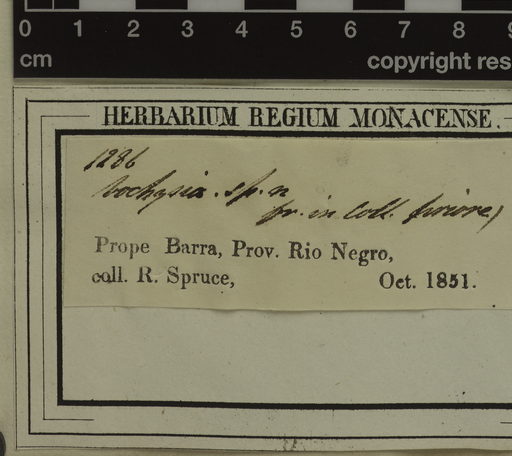 0 1 2 3 4 5 6 7 8 9
cm copyright res
HERBARIUM REGIUM MONACENSE.
1286
Vochysia. sp. n
fr. in Coll. priore)
Prope Barra, Prov. Rio Negro,
coll. R. Spruce, Oct. 1851.